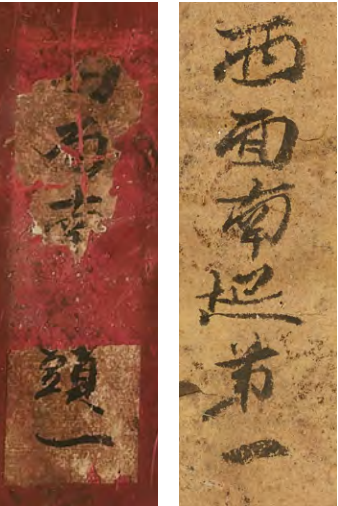 面南頭一
西面南起第一